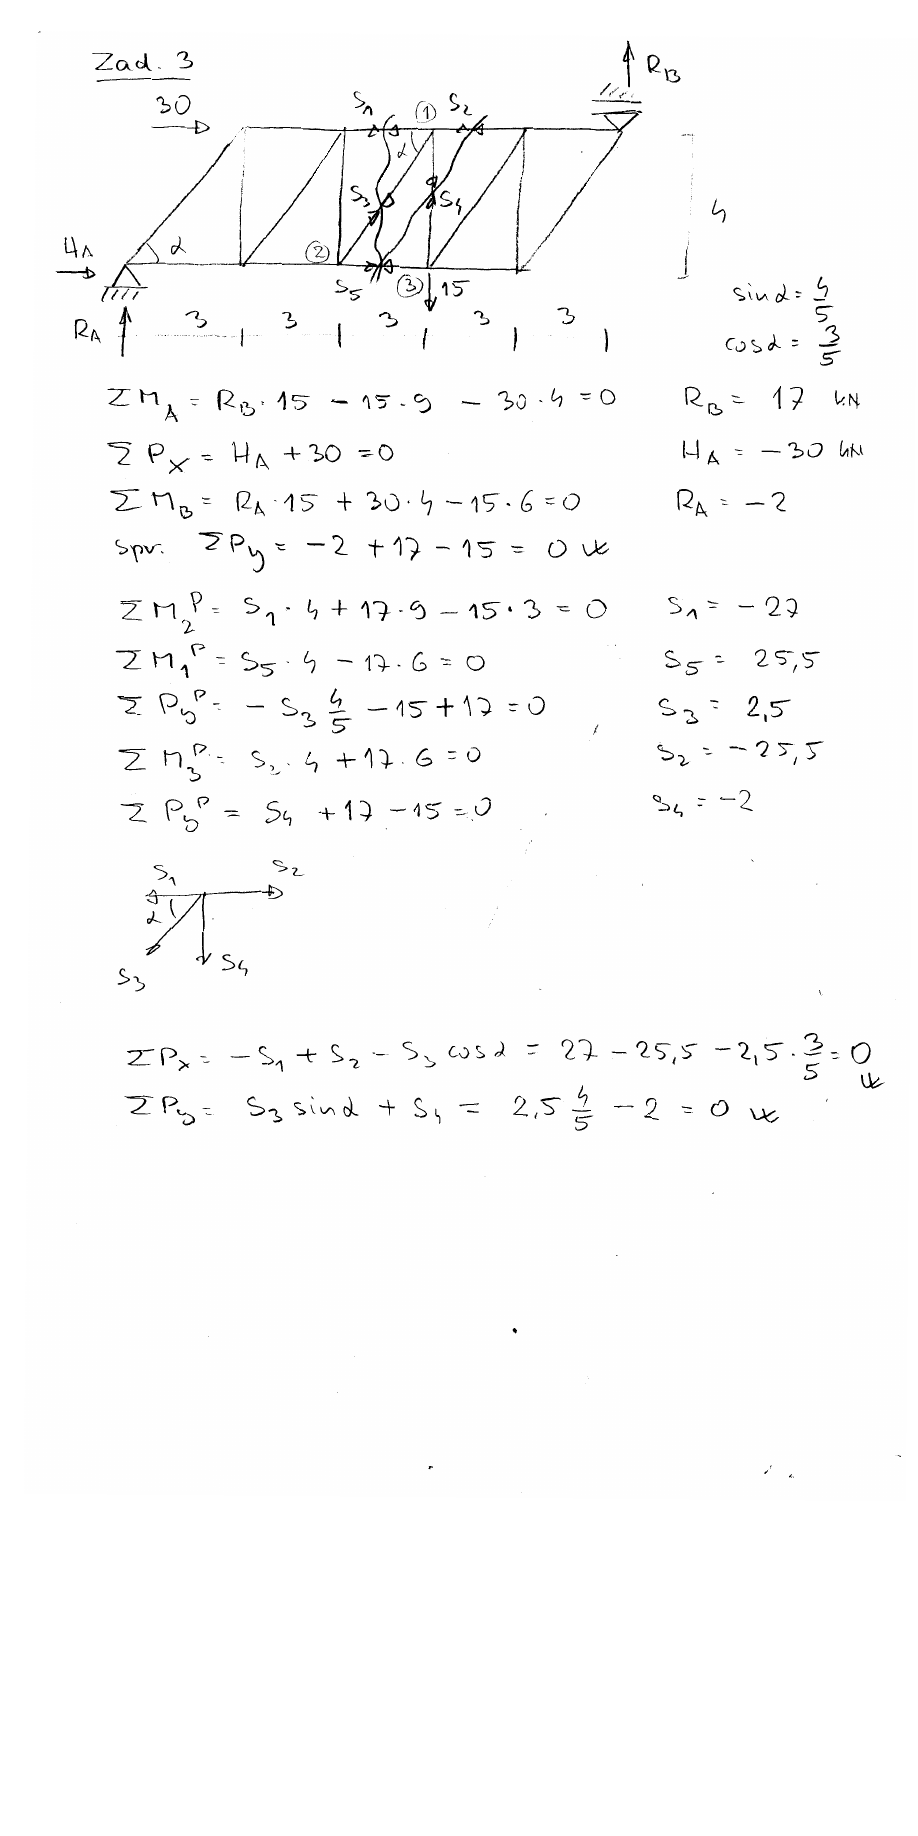 Zad. 3
R_B
30
S_1 ① S_2
α
S_3 S_4
4
H_A α ②
S_5 ③ 15
sin α = 4/5
R_A 3 3 3 3 3
cos α = 3/5
Σ M_A = R_B · 15 − 15 · 9 − 30 · 4 = 0 R_B = 17 kN
Σ P_X = H_A + 30 = 0 H_A = −30 kN
Σ M_B = R_A · 15 + 30 · 4 − 15 · 6 = 0 R_A = −2
spr. Σ P_y = −2 + 17 − 15 = 0
Σ M_2^P = S_1 · 4 + 17 · 9 − 15 · 3 = 0 S_1 = −27
Σ M_1^P = S_5 · 4 − 17 · 6 = 0 S_5 = 25,5
Σ P_y^P = − S_3 4/5 − 15 + 17 = 0 S_3 = 2,5
Σ M_3^P = S_2 · 4 + 17 · 6 = 0 S_2 = −25,5
Σ P_y^P = S_4 + 17 − 15 = 0 S_4 = −2
S_1 S_2
α
S_3 S_4
Σ P_x = − S_1 + S_2 − S_3 cos α = 27 − 25,5 − 2,5 · 3/5 = 0
Σ P_y = S_3 sin α + S_4 = 2,5 4/5 − 2 = 0